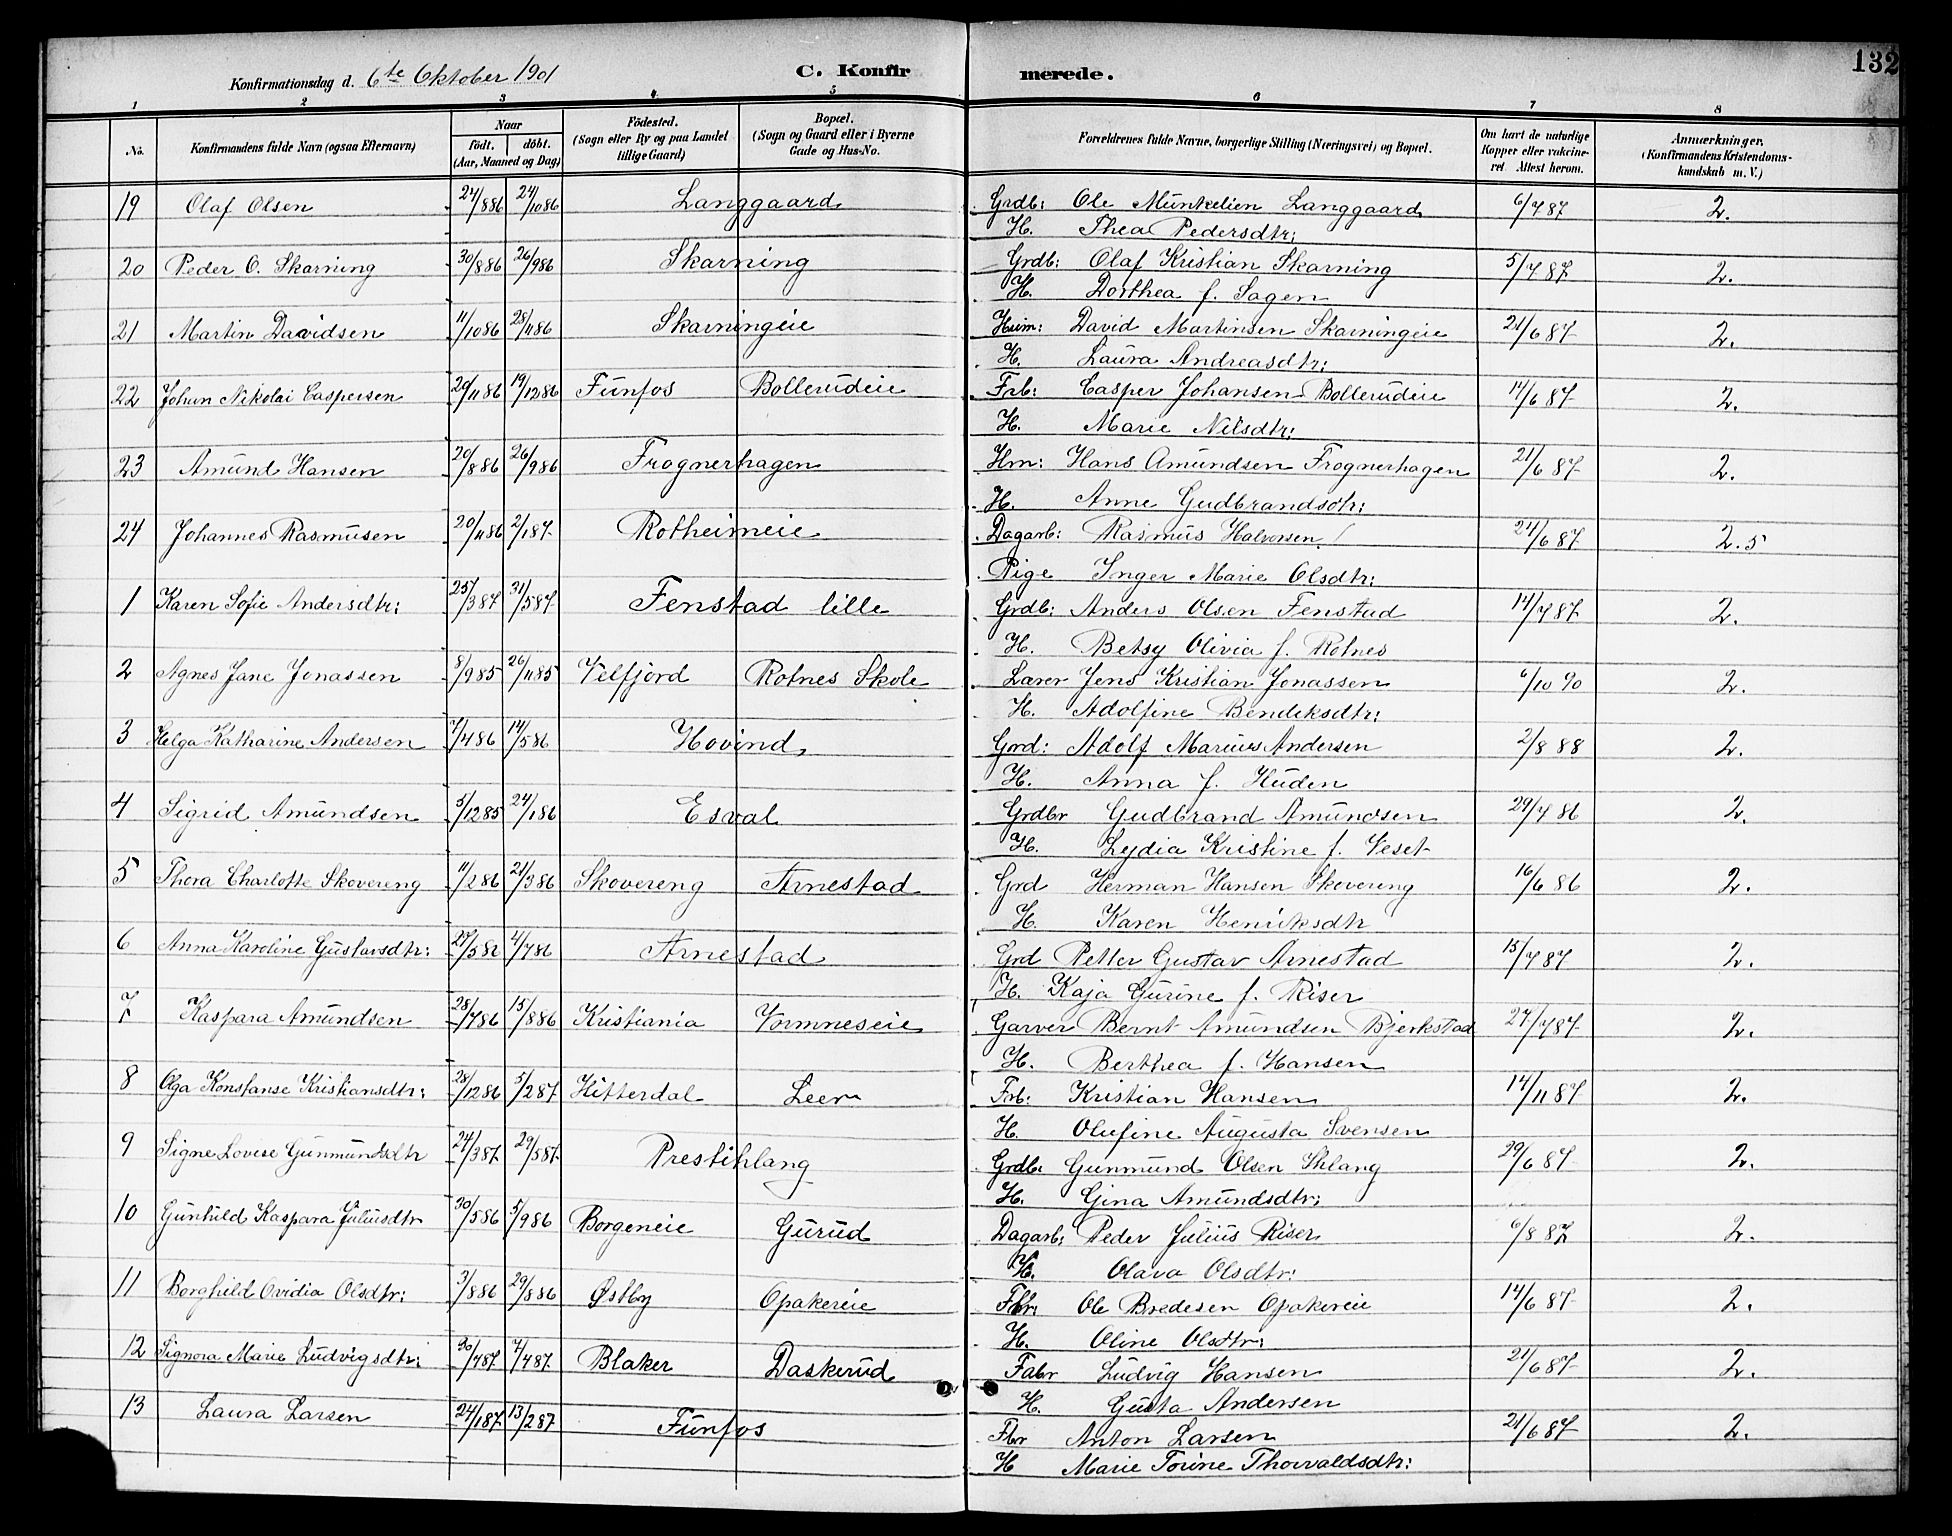 132
Konfirmationsdag d. 6te Oktober 1901 C. Konfirmerede.
1 2 3 4 5 6 7 8
No. Konfirmandens fulde Navn (ogsaa Efternavn) Naar født. døbt. (Aar, Maaned og Dag) Fødested. (Sogn eller By og paa Landet tillige Gaard) Bopæl. (Sogn og Gaard eller i Byerne Gade og Hus-No. Forældrenes fulde Navne, borgerlige Stilling (Næringsvei) og Bopæl. Om havt de naturlige Kopper eller vakcineret Attest herom. Anmærkninger, (Konfirmandens Kristendomskundskab m. V.)
19 Olaf Olsen 24/8 86 24/10 86 Langgaard Grdb: Ole Munkelien Langgaard 6/7 87 2.
H. Thea Pedersdtr:
20 Peder O. Skarning 30/8 86 26/9 86 Skarning Grdb: Olaf Kristian Skarning 5/7 87 2.
H. Dorthea f. Sagen
21 Martin Davidsen 11/10 86 28/11 86 Skarningeie Husm: David Martinsen Skarningeie 21/6 87 2.
H. Laura Andreasdtr:
22 Johan Nikolai Caspersen 20/11 86 19/12 86 Funfos Bollerudeie Frb: Casper Johansen Bollerudeie 14/6 87 2.
H. Marie Nilsdtr:
23 Amund Hansen 20/8 86 26/9 86 Frognerhagen Hm: Hans Amundsen Frognerhagen 21/6 87 2.
H. Anne Gudbrandsdtr:
24 Johannes Rasmusen 20/11 86 2/1 87 Rotheimeie Dagarb: Rasmus Halvorsen 24/6 87 2.5
Pige Inger Marie Olsdtr:
1 Karen Sofie Andersdtr: 25/3 87 31/5 87 Fenstad lille Grdb: Anders Olsen Fenstad 14/7 87 2.
H. Betsy Olivia f. Rotnes
2 Agnes Jane Jonassen 8/9 85 26/11 85 Velfjord Rotnes Skole Lærer Jens Kristian Jonassen 6/10 90 2.
H. Adolfine Bendiksdtr:
3 Helga Katharine Andersen 7/4 86 14/5 86 Hovind Grd: Adolf Marius Andersen 2/8 88 2.
H. Anna f. Huden
4 Sigrid Amundsen 5/12 85 24/1 86 Esval Grdbr Gudbrand Amundsen 29/7 86 2.
H. Lydia Kristine f. Seset
5 Thora Charlotte Skovereng 11/2 86 21/3 86 Skovereng Arnestad Grd Herman Hansen Skovereng 16/6 86 2.
H. Karen Henriksdtr
6 Anna Karoline Gustavsdtr: 27/5 86 4/7 86 Arnestad Grd Petter Gustav Arnestad 15/7 87 2.
H. Kaja Gurine f. Riser
7 Kaspara Amundsen 28/7 86 15/8 86 Kristiania Vormneseie Garver Bernt Amundsen Bjerkstad 27/7 87 2.
H. Berthea f. Hansen
8 Olga Konstanse Kristiansdtr: 28/12 86 5/2 87 Hitterdal Leer Frb: Kristian Hansen 14/11 87 2.
H. Olufine Augusta Svensen
9 Signe Lovise Gunmundsdtr 24/3 87 29/5 87 Prestihlang Grdb: Gunmund Olsen Ihlang 29/6 87 2.
H. Gina Amundsdtr:
10 Gunhild Kaspara Juliusdtr 30/5 86 5/9 86 Borgeneie Gurud Dagarb: Peder Julius Riser 6/8 87 2.
H. Olava Olsdtr:
11 Borghild Ovidia Olsdtr: 3/8 86 29/8 86 Østby Opakereie Fbr: Ole Bredesen Opakereie 14/6 87 2.
H. Oline Olsdtr:
12 Signora Marie Ludvigsdtr: 30/4 87 7/4 87 Blaker Daskerud Fabr Ludvig Hansen 21/6 87 2.
H. Gusta Andersen
13 Laura Larsen 24/1 87 13/2 87 Funfos Fbr Anton Larsen 21/6 87 2.
H Marie Torine Thorvaldsdtr: